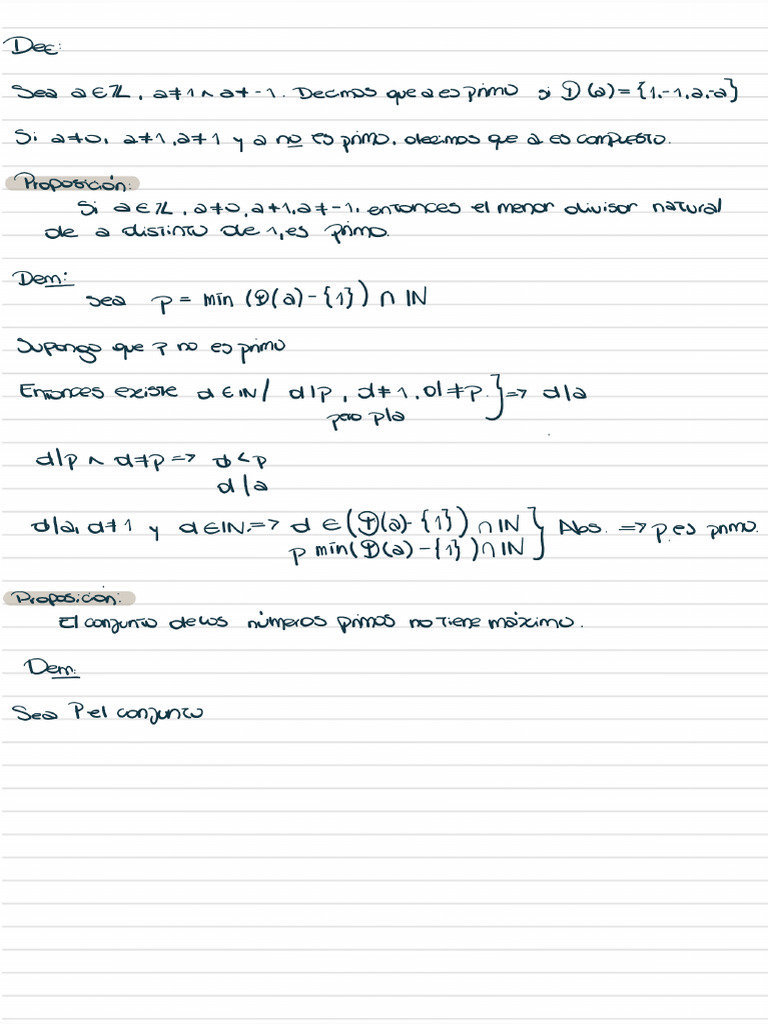 Dec:
Sea a ∈ ℤ, a≠1 ∧ a≠-1. Decimos que a es primo si D(a) = {1,-1,a,-a}
Si a≠0, a≠1, a≠1 y a no es primo, decimos que a es compuesto.
Proposición:
Si a ∈ ℤ, a≠0, a≠1, a≠-1, entonces el menor divisor natural
de a distinto de 1, es primo.
Dem:
Sea p = mín (D(a) - {1}) ∩ IN
Supongo que p no es primo
Entonces existe d ∈ IN / d|p, d≠1, d≠p. } => d|a
pero p|a
d|p ∧ d≠p => d < p
d|a
d|a, d≠1 y d ∈ IN => d ∈ (D(a) - {1}) ∩ IN } Abs. => p es primo.
p mín(D(a) - {1}) ∩ IN
Proposición:
El conjunto de los números primos no tiene máximo.
Dem:
Sea P el conjunto